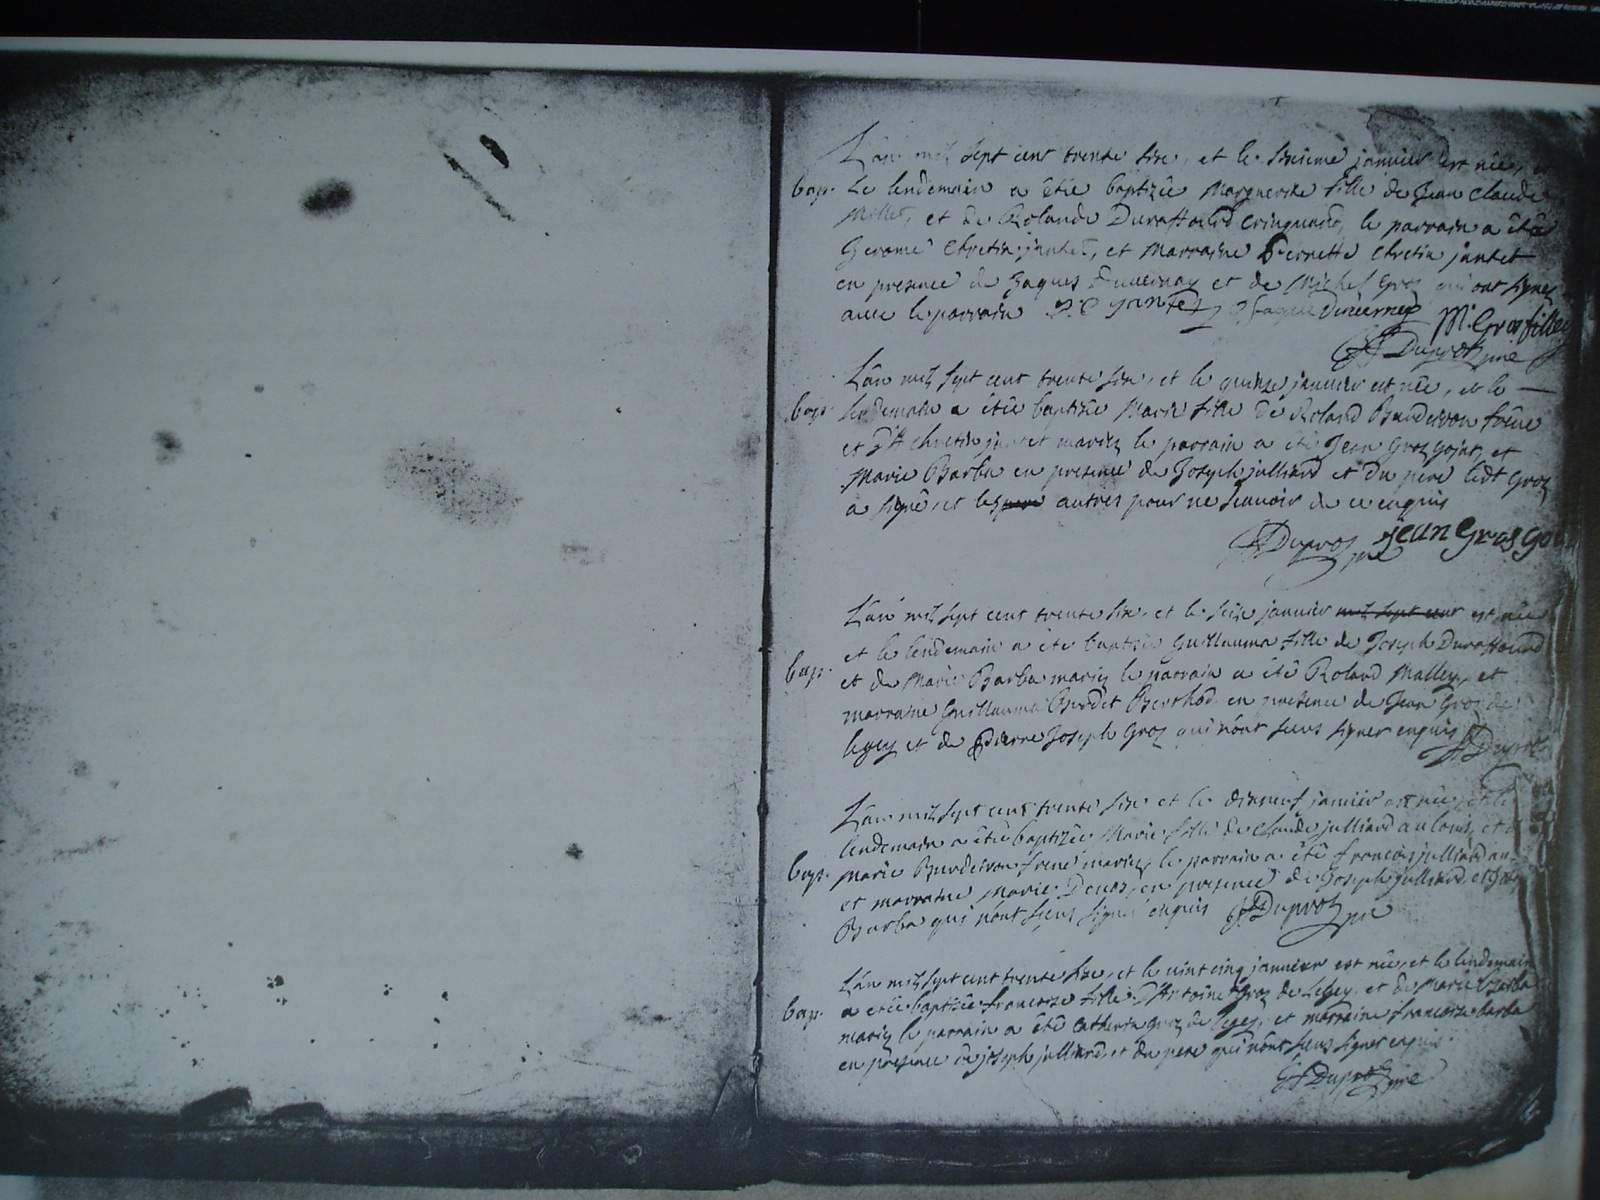 L'an mil sept cent trente six, et le sixieme janvier est née, et
bap. Le lendemain a êtée baptizée Marguerite fille de Jean Claude
Millet, et de Rolande Duraffourd Cringuand, le parrain a êté
Gerome Chretin jantet, et marraine Pernette Chretin jantet
en presence de Jaques Duvernay et de Michel Groz qui ont signez
avec le parrain J. C Jantet Jaque Duvernay M. Gros filley
Duproz pre
L'an mil sept cent trente six, et le quinze janvier est née, et le
bap. lendemain a êtée baptizée Marie fille de Roland Burdeyron frene
et d'A chretin jantet mariez le parrain a êté Jean Groz Gojat, et
Marie Barba en presence de Joseph julliard et du pere ledt Groz
a signé, et les pere autres pour ne scavoir de ce enquis
Duproz pre jean Gros Go
L'an mil sept cent trente six, et le seize janvier mil sept cent est née
et le lendemain a été baptizée Guillauma fille de Joseph Duraffourd
bap. et de Marie Barba mariez le parrain a êté Roland Malley, et
marraine Guillauma Burdet Berthod en presence de Jean Groz de
legey et de Pierre Joseph Groz qui n'ont sceus signer enquis Duproz
L'an mil sept cent trente six et le dixneuf janvier est née, et le
lendemain a êtée baptizée Marie fille de Claude julliard au louis, et de
bap. Marie Burdeiron frene mariez, le parrain a êté francois julliard au
et marraine Marie Donas, en presence de Joseph julliard, et
Barba qui n'ont sceus signer enquis Duproz pre
L'an mil sept cent trente six, et le vint cinq janvier est née, et le lendemain
bap. a êtée baptizée francoize fille d'Antoine Groz de Legey, et de Marie Barba
mariez le parrain a êté Catherin groz de legey, et marraine francoize barba
en presence de joseph julliard, et du pere qui n'ont sceus signer enquis.
Duproz pre